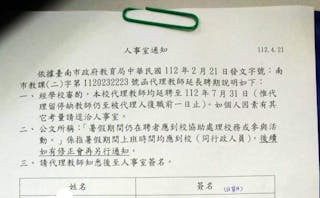 人事室通知
112.4.21
依據臺南市政府教育局中華民國 112 年 2 月 21 日發文字號：南
市教課(二)字第 1120232223 號函代理教師延長聘期說明如下：
一、經學校審酌，本校代理教師均延聘至 112 年 7 月 31 日（惟代
理留停缺教師仍至被代理人復職前一日止）。如個人因素有其
它考量請逕洽人事室。
二、公文所稱：「暑假期間仍在聘者應到校協助處理校務或參與活
動。」係指暑假期間上班時間均應到校（同行政人員），後續
如有修正會再另行通知。
三、請代理教師知悉後至人事室簽名。
姓名
簽名